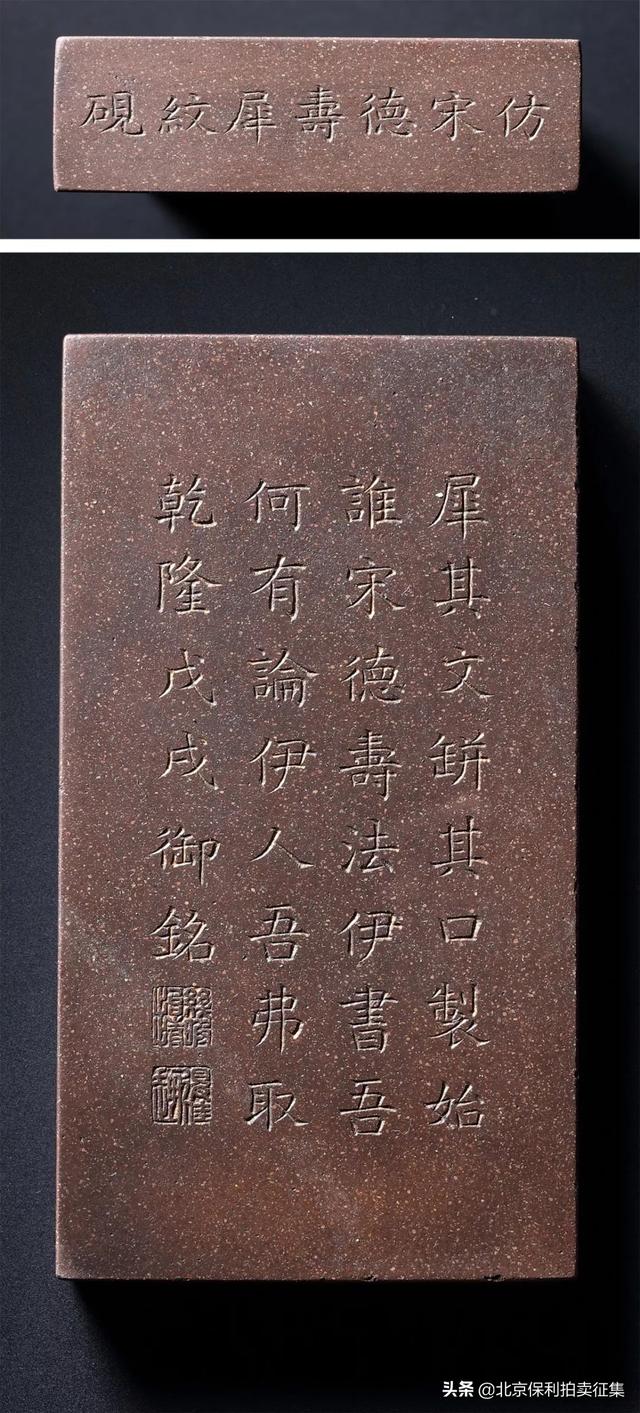 仿宋德壽犀紋硯
犀其文缾其口製始
誰宋德壽法伊書吾
何有論伊人吾弗取
乾隆戊戌御銘
头条 @北京保利拍卖征集